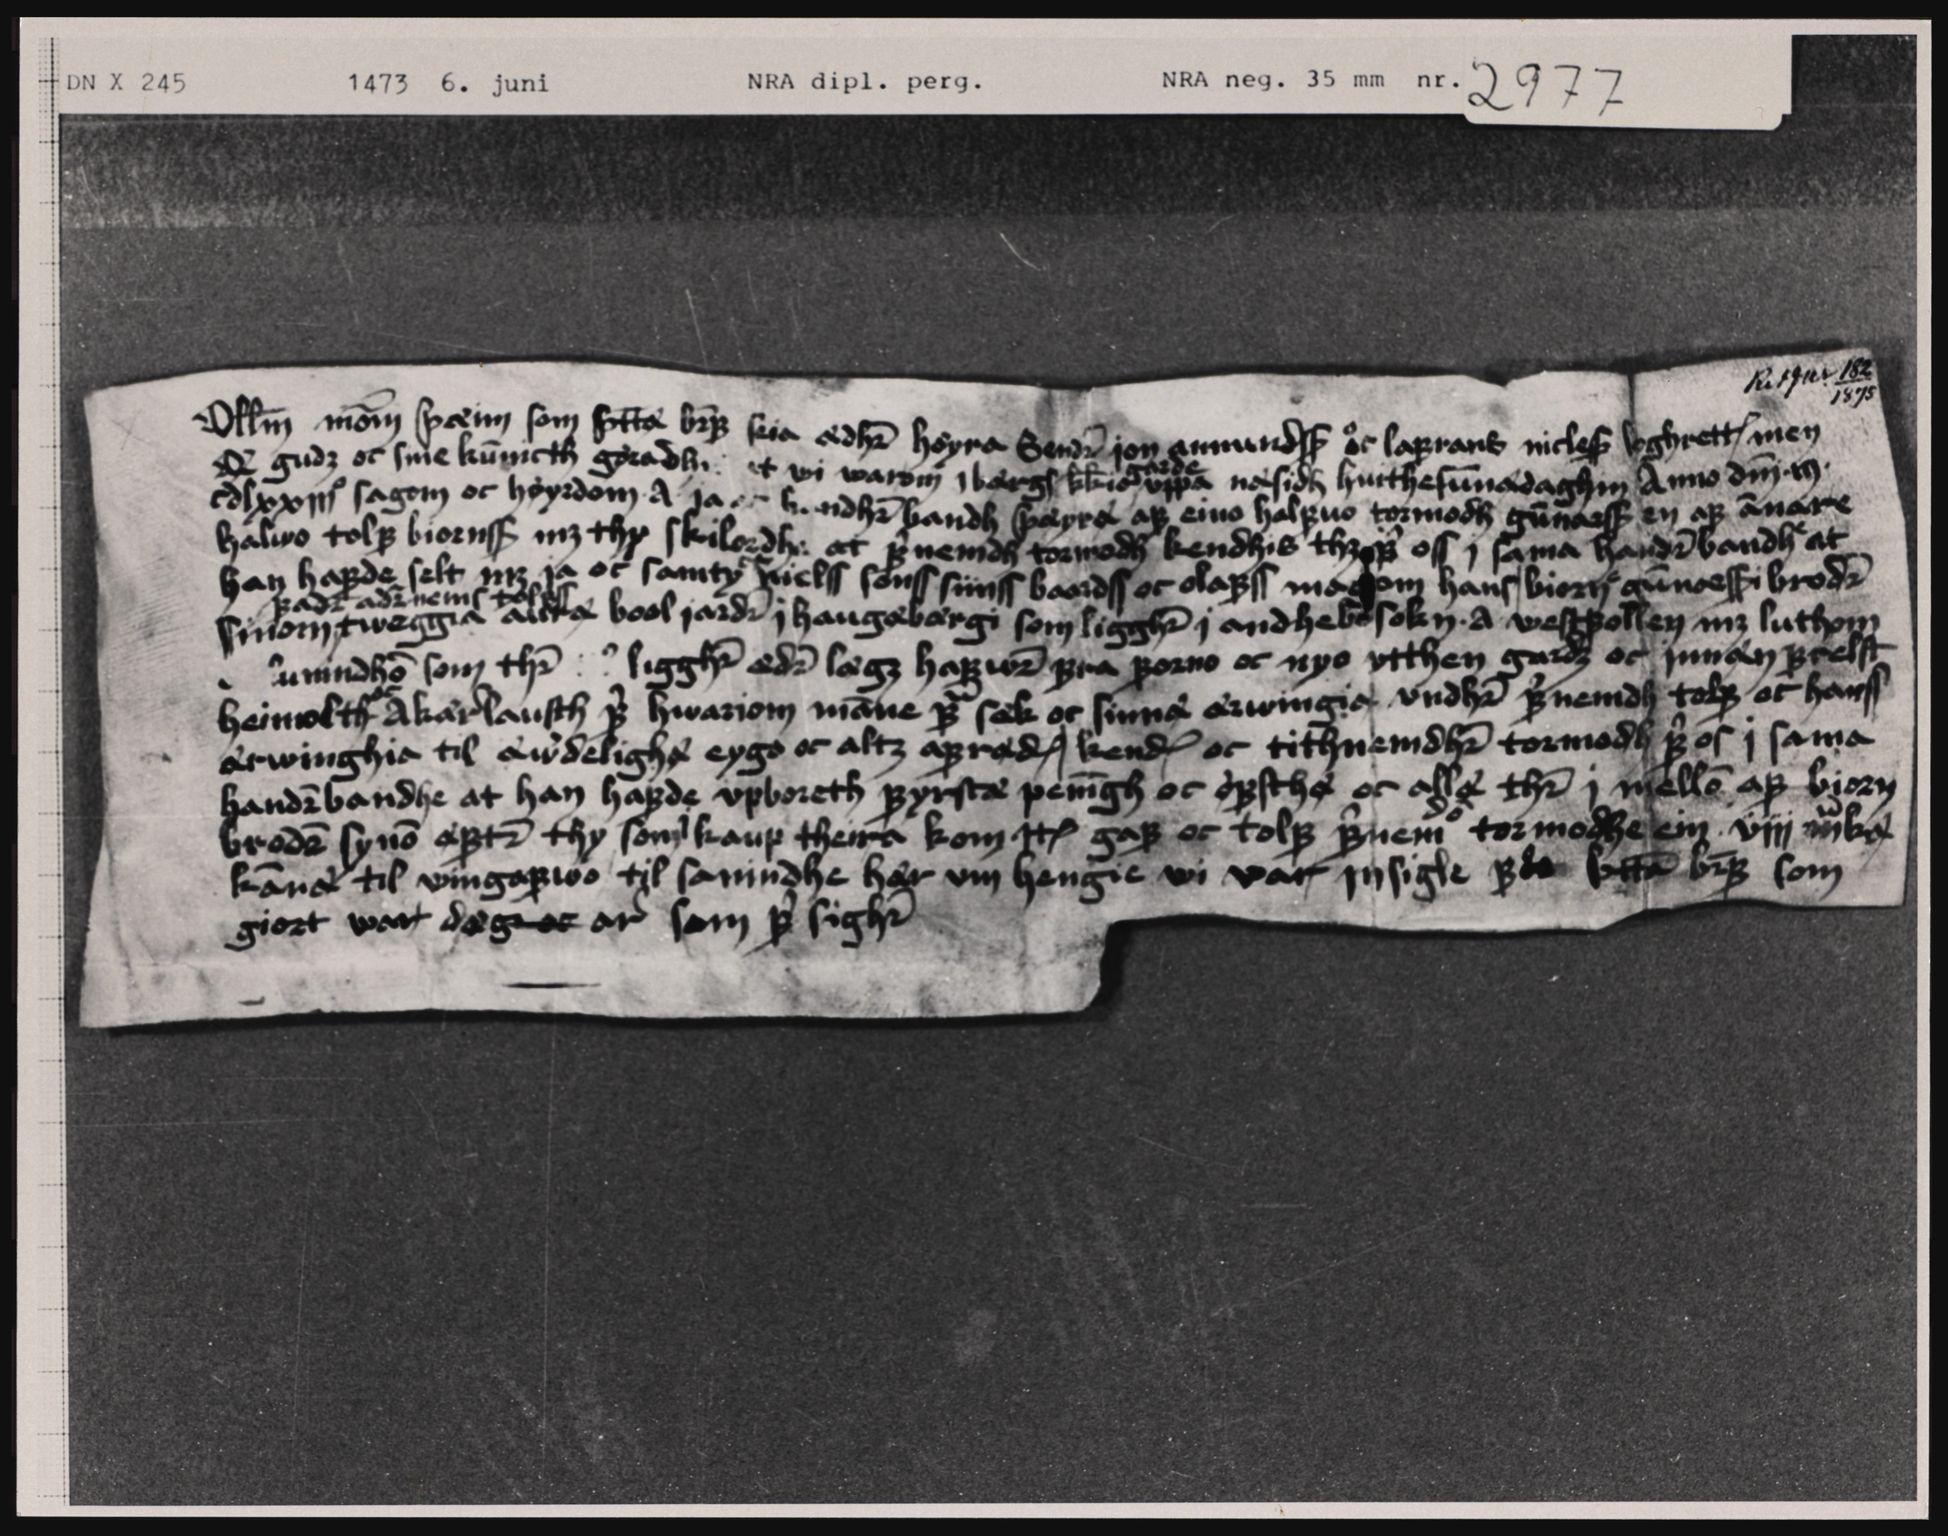 DN X 245 1473 6. juni NRA dipl. perg. NRA neg. 35 mm nr. 2977
182
1875
Ollm̄ mōm þæim som þttæ br̄ff sia ædhr̄ høyra Sendr̄ jon amundss oc laffrans nicless loghrett men
Q. gudz oc sine kūnicth gøradh at wi warom j bærgs kkio garde vppa næsidh huithesūnadaghin Anno dm̄ m
cdlxxiijº sagom oc høyrdom A ja oc handhr̄bandh þøyræ aff eino halffuo tormodh gūnarss en aff ānare
halwo tolff biornss mz thy skilordhe at ffnemdh tormodh kendhis thz ff oss j sama handr̄bandhe at
han haffde selt mz ja oc samty nielss sonss siinss baardss oc olaffss magom hans biorn gūnarssi brodr̄
sinom fadr̄ adr̄nems tolffss tweggia aura bool jardr̄ j haugabærgi som ligghr̄ j andhebo sokn A westffollen mz luthom
unindhō som thr̄ ligghr̄ ædr̄ læghz haffwr̄ ffra fforno oc nyo vtthen gardz oc innan ffrelst
heimolth oc Akærlausth ff hwariom māne ff sek oc sinnæ ærwingia vndhr̄ ffnemdh tolff oc hanss
ærwinghia til æwerdelighæ eygo oc altz affrædes kendes oc tithnemdhr̄ tormodh ff os j sama
handr̄bandhe at han haffde vpboreth ffyrsta penīgh oc øffsthæ oc allæ thr̄ j mellō aff biorn
brodr̄ synō æfftr̄ thy som j kaup theira kom It gaff oc tolff ffnemdº tormodhe ein viij mr̄ka
kānæ til wingaffwo til sanindhe hær vm hengie wi var insigle ff þttā br̄ff som
giort war dæg oc ar som ff sighr̄